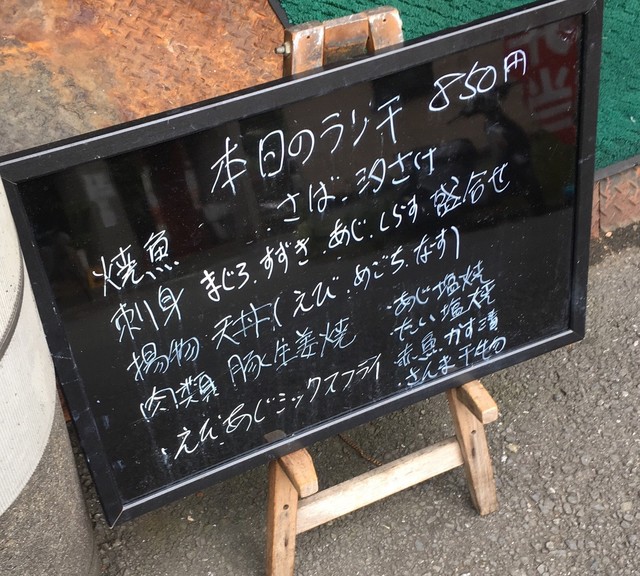 本日のランチ 850円
焼魚 さば・汐さけ
刺身 まぐろ.すずき.あじ.しらす 盛合せ
揚物 天丼(えび.めごち.なす)
肉類 豚生姜焼
・えびあじミックスフライ
・あじ塩焼
・たい塩焼
・赤魚かす漬
・さんま干物